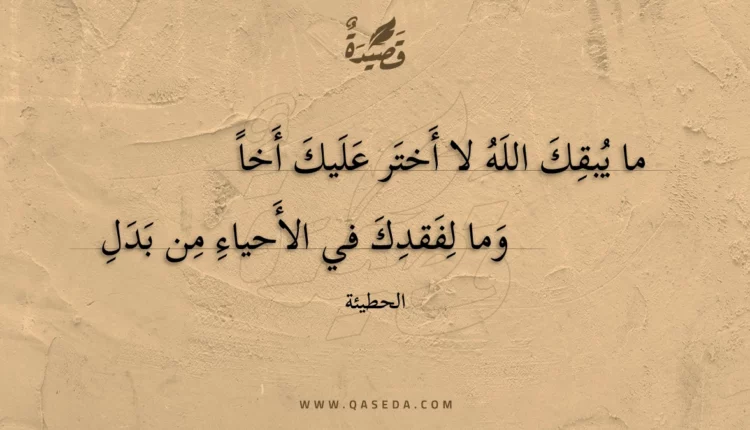 قَصِيْدَةٌ
ما يُبقِكَ اللَهُ لا أَختَر عَلَيكَ أَخاً
وَما لِفَقدِكَ في الأَحياءِ مِن بَدَلِ
الحطيئة
WWW.QASEDA.COM